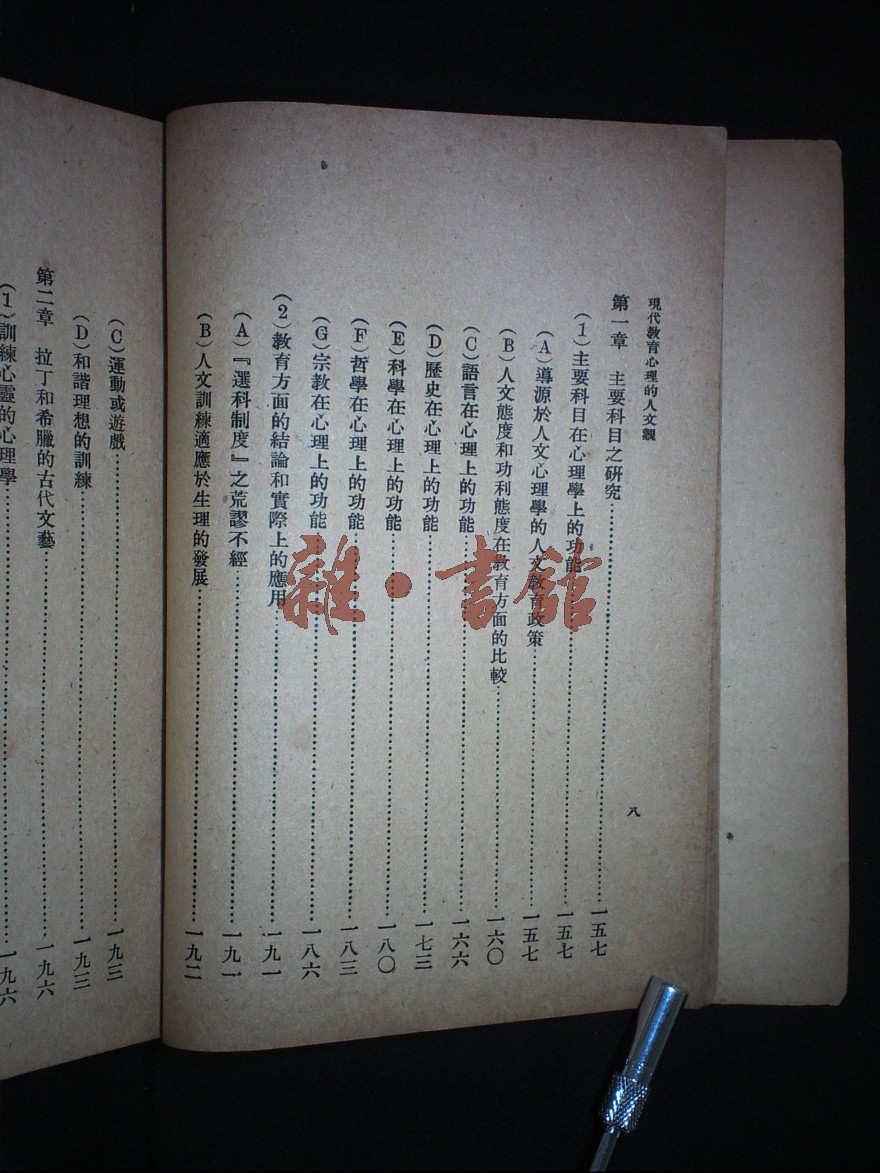 現代教育心理的人文觀
八
第一章 主要科目之研究……一五七
(1)主要科目在心理學上的功能……一五七
(A)導源於人文心理學的人文教育政策……一五七
(B)人文態度和功利態度在教育方面的比較……一六〇
(C)語言在心理上的功能……一六六
(D)歷史在心理上的功能……一七三
(E)科學在心理上的功能……一八〇
(F)哲學在心理上的功能……一八三
(G)宗教在心理上的功能……一八六
(2)教育方面的結論和實際上的應用……一九一
(A)『選科制度』之荒謬不經……一九一
(B)人文訓練適應於生理的發展……一九二
(C)運動或遊戲……一九三
(D)和諧理想的訓練……一九三
第二章 拉丁和希臘的古代文藝……一九六
(1)訓練心靈的心理學……一九六
雜·書館